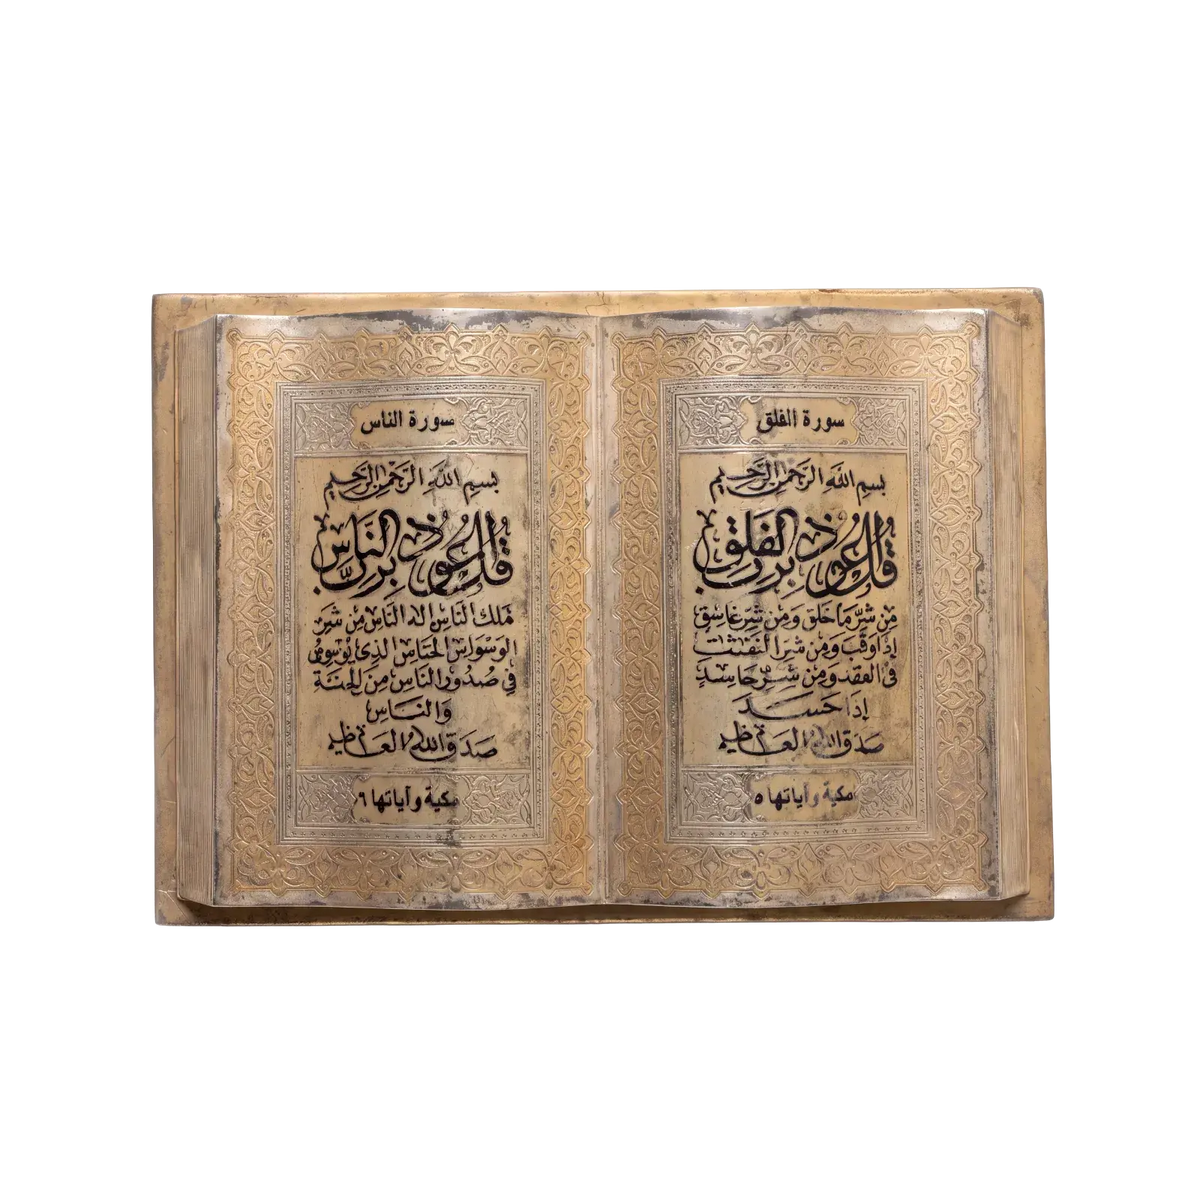 سورة الفلق
بسم الله الرحمن الرحيم
قل أعوذ برب الفلق
من شر ما خلق ومن شر غاسق
إذا وقب ومن شر النفثت
في العقد ومن شر حاسد
إذا حسد
صدق الله العظيم
مكية وآياتها ٥
سورة الناس
بسم الله الرحمن الرحيم
قل أعوذ برب الناس
ملك الناس إله الناس من شر
الوسواس الخناس الذي يوسوس
في صدور الناس من الجنة
والناس
صدق الله العظيم
مكية وآياتها ٦